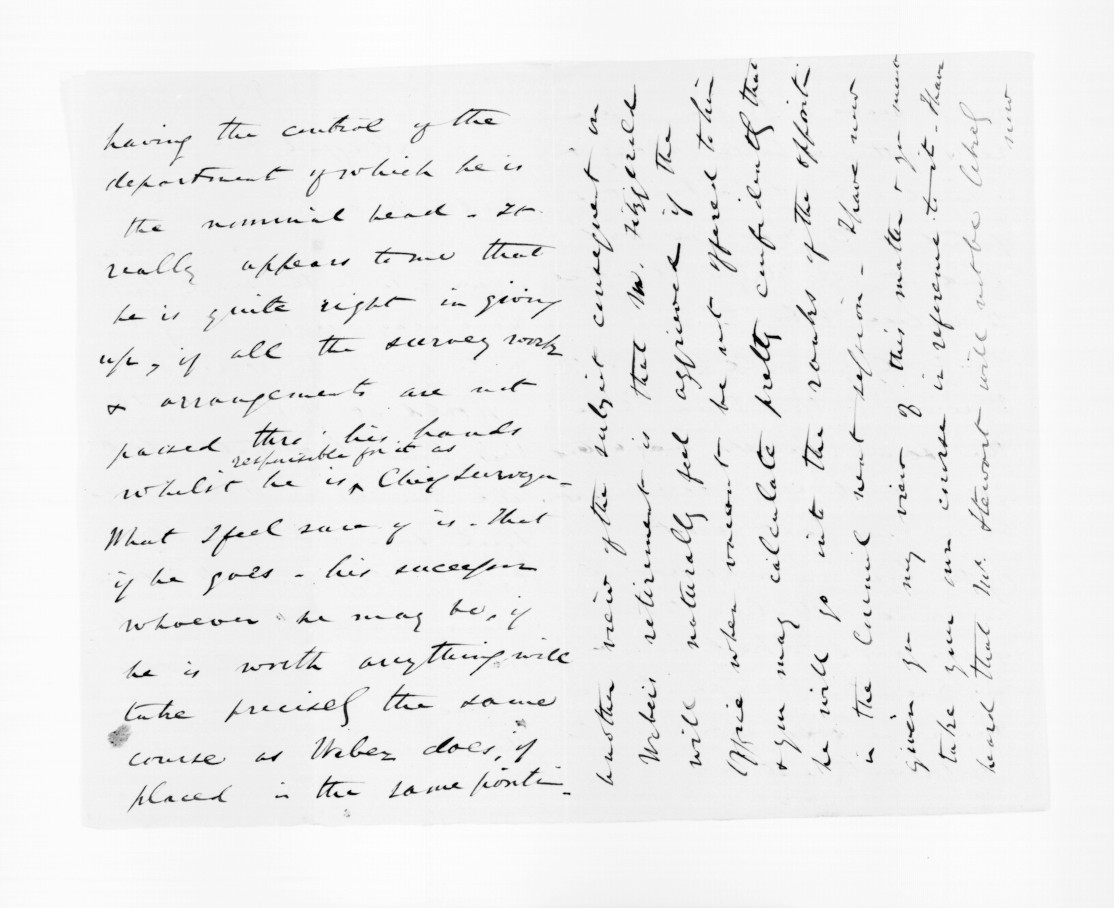 having the control of the
department of which he is
the nominal head - It
really appears to me that
he is quite right in giving
up, if all the survey work
& arrangements are not
passed thro' his hands
responsible for it as
whilst he is ^ Chief Surveyor -
What I feel sure of is - that
if he goes - his successor
whoever he may be, if
he is worth anything will
take precisely the same
course as Weber does, if
placed in the same positi -
another view of the subject consequent on
Webers retirement is that Mr. Fitzgerald
will naturally feel aggrieved if the
Office when vacant be not offered to him
& you may calculate pretty confidently that
he will go into the ranks of the oppositi
in the Council next session - I have now
given you my view of this matter & you must
take your own course in reference to it - I have
heard that Mr. Stewart will not be likely
now